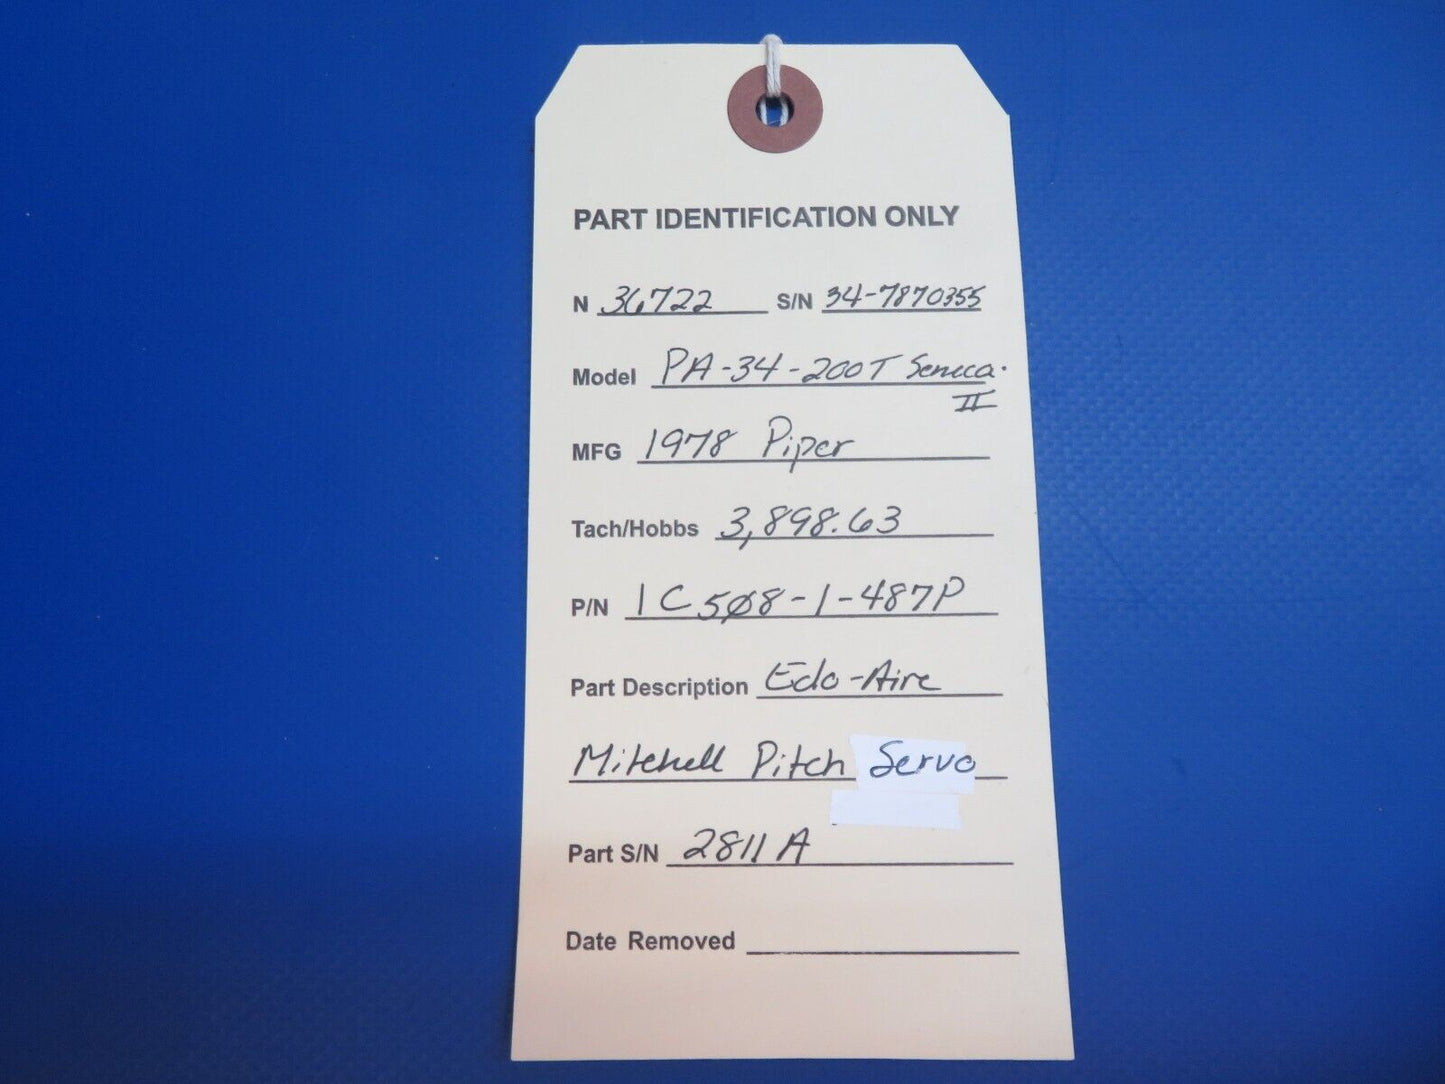 PART IDENTIFICATION ONLY
N 36722 S/N 34-7870355
Model PA-34-200T Seneca
II
MFG 1978 Piper
Tach/Hobbs 3,898.63
P/N 1C508-1-487P
Part Description Edo-Aire
Mitchell Pitch Servo
Part S/N 2811A
Date Removed